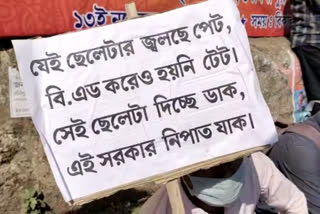 ১৩ই
যেই ছেলেটার জ্বলছে পেট,
বি.এড করেও হয়নি টেট।
সেই ছেলেটা দিচ্ছে ডাক,
এই সরকার নিপাত যাক।